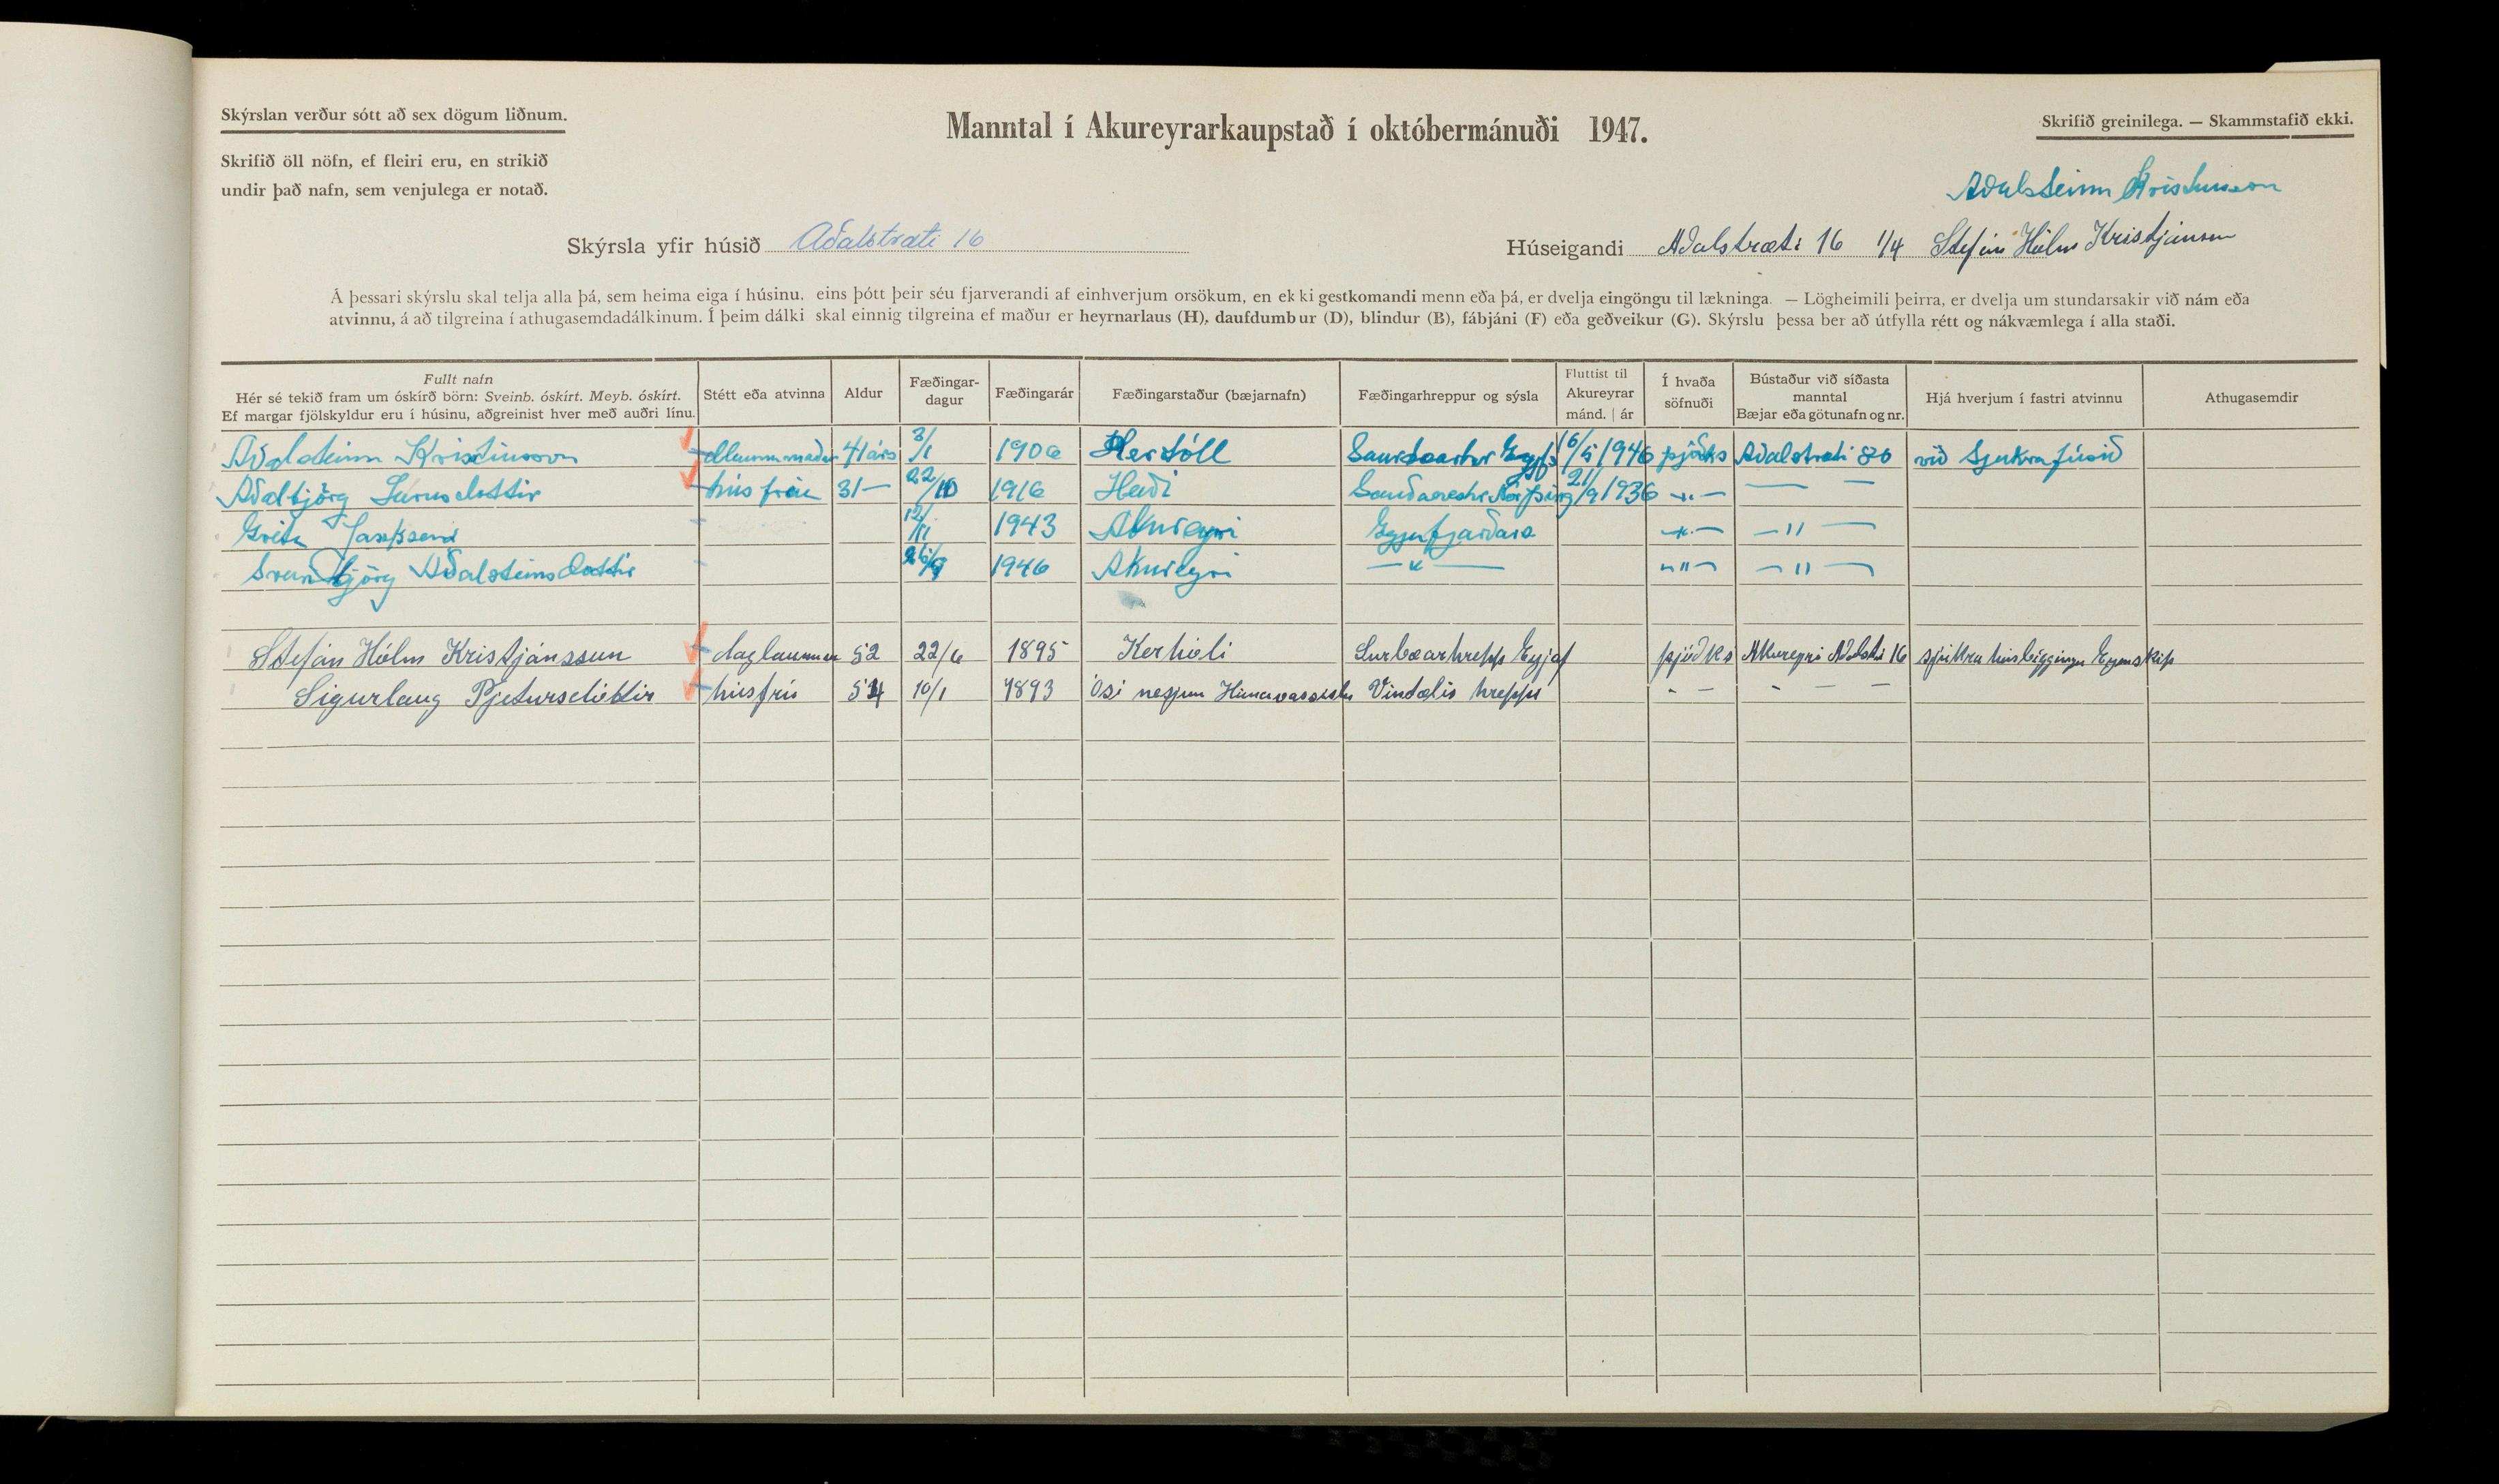 Skýrslan verður sótt að sex dögum liðnum.
Skrifið öll nöfn, ef fleiri eru, en strikið
undir það nafn, sem venjulega er notað.
Manntal í Akureyrarkaupstað í októbermánuði 1947.
Skrifið greinilega. — Skammstafið ekki.
Aðalsteinn Kristinsson
Skýrsla yfir húsið Aðalstræti 16
Húseigandi Aðalstræti 16 1/4 Stefán Hólm Kristjánsson
Á þessari skýrslu skal telja alla þá, sem heima eiga í húsinu, eins þótt þeir séu fjarverandi af einhverjum orsökum, en ekki gestkomandi menn eða þá, er dvelja eingöngu til lækninga. — Lögheimili þeirra, er dvelja um stundarsakir við nám eða
atvinnu, á að tilgreina í athugasemdadálkinum. Í þeim dálki skal einnig tilgreina ef maður er heyrnarlaus (H), daufdumbur (D), blindur (B), fábjáni (F) eða geðveikur (G). Skýrslu þessa ber að útfylla rétt og nákvæmlega í alla staði.
Fullt nafn
Hér sé tekið fram um óskírð börn: Sveinb. óskírt. Meyb. óskírt.
Ef margar fjölskyldur eru í húsinu, aðgreinist hver með auðri línu.
Stétt eða atvinna
Aldur
Fæðingar-
dagur
Fæðingarár
Fæðingarstaður (bæjarnafn)
Fæðingarhreppur og sýsla
Fluttist til
Akureyrar
mánd. | ár
Í hvaða
söfnuði
Bústaður við síðasta
manntal
Bæjar eða götunafn og nr.
Hjá hverjum í fastri atvinnu
Athugasemdir
Aðalsteinn Kristinsson 41 árs 3/1 1906 16/5 1946 þjóðks Aðalstræti við Sjukrahúsið
Aðalbjörg hús frú 31 — 22/10 1916 Heiði 21/9 1936 -"- — —
Gréta 12/11 1943 Akureyri Eyjafjarðars -"- -"-
Sveinbjörg Aðalsteinsdottir 1946 Akureyri -"- -"- -"-
Stefán Hólm Kristjánsson daglaunam 52 22/6 1895 Kerhóli Surbæarhrepp Eyjaf þjóðks Akureyri Aðalstr 16
Sigurlaug Pjetursdóttir húsfrú 54 10/1 1893 Vindælis hrepps - — - — —